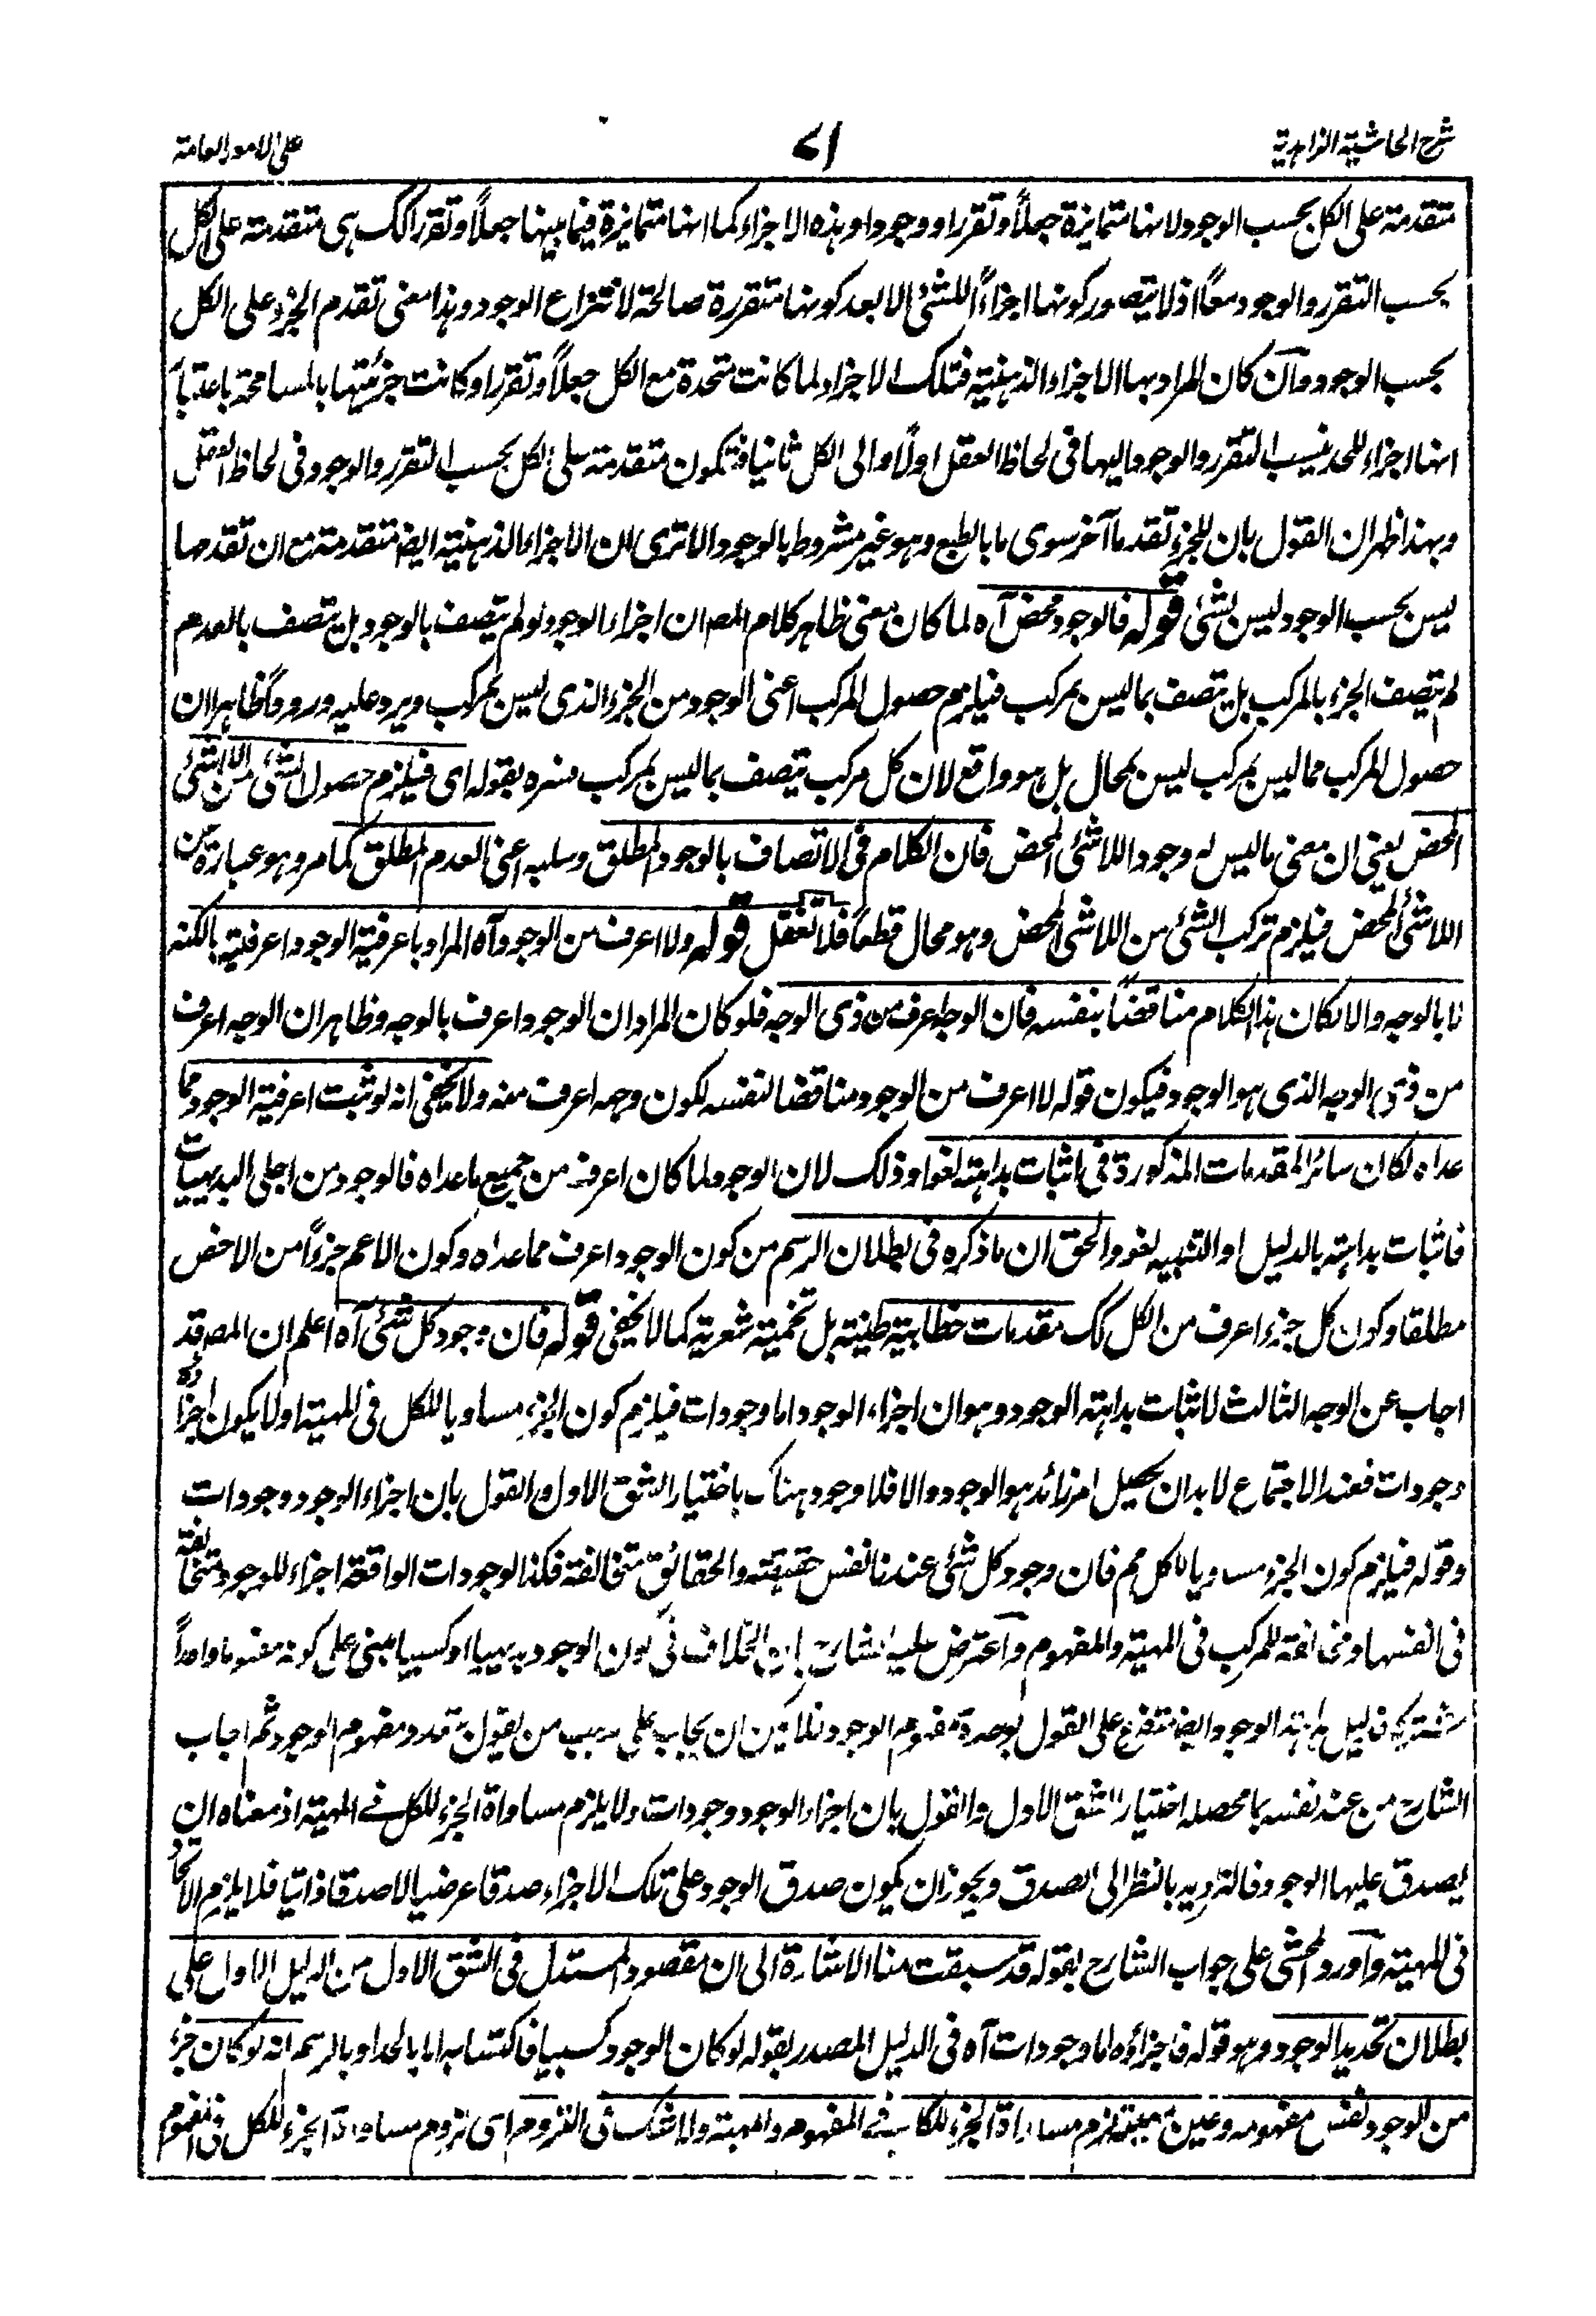 شرح الحاشية الزاهدية
٧١
على الامور العامة
متقدمة على الكل بحسب الوجود لانها متمايزة جعلاً وتقررا ووجودا وهذه الاجزاء كما انها متمايزة فيما بينها جعلاً وتقررا كك هى متقدمة على الكل
بحسب التقرر والوجود معاً اذ لا يتصور كونها اجزاءً للشئ الا بعد كونها متقررة صالحة لانتزاع الوجود وهذا معنى تقدم الجزء على الكل
بحسب الوجود وان كان المراد بها الاجزاء الذهنية فتلك الاجزاء لما كانت متحدة مع الكل جعلاً وتقررا وكانت جزئيتها بالمسامحة باعتبار
انها اجزاء للحد ينسب التقرر والوجود اليها فى لحاظ العقل اولاً والى الكل ثانيا فتكون متقدمة على الكل بحسب التقرر والوجود فى لحاظ العقل
وبهذا ظهر ان القول بان للجزء تقدما آخر سوى ما بالطبع وهو غير مشروط بالوجود الا ترى ان الاجزاء الذهنية ايضا متقدمة مع ان تقدمها
ليس بحسب الوجود ليس بشئ قوله فالوجود محض آه لما كان معنى ظاهر كلام المصـ ان اجزاء الوجود لو لم يتصف بالوجود بل يتصف بالعدم
لم يتصف الجزء بالمركب بل يتصف بما ليس بمركب فيلزم حصول المركب اعنى الوجود من الجزء الذى ليس بمركب ويرد عليه ورودًا ظاهرا ان
حصول المركب مما ليس بمركب ليس بمحال بل هو واقع لان كل مركب يتصف بما ليس بمركب فسره بقوله اى فيلزم حصول الشئ من اللاشئ
المحض يعنى ان معنى ما ليس له وجود اللاشئ المحض فان الكلام فى الاتصاف بالوجود المطلق وسلبه اعنى العدم المطلق كما مر وهو عبارة عن
اللاشئ المحض فيلزم تركب الشئ من اللاشئ المحض وهو محال قطعاً فلا تغفل قوله ولا اعرف من الوجود آه المراد باعرفية الوجود اعرفيته بالكنه
لا بالوجه والا لكان هذا الكلام مناقضاً بنفسه فان الوجه اعرف من ذى الوجه فلو كان المراد ان الوجود اعرف بالوجه وظاهر ان الوجه اعرف
من ذى الوجه الذى هو الوجود فيكون قوله لا اعرف من الوجود مناقضا لنفسه لكون وجهه اعرف منه ولا يخفى انه لو ثبت اعرفية الوجود مما
عداه لكان سائر المقدمات المذكورة فى اثبات بداهته لغوا وذلك لان الوجود لما كان اعرف من جميع ما عداه فالوجود من اجلى البديهيات
فاثبات بداهته بالدليل او التنبيه لغو والحق ان ما ذكره فى بطلان الرسم من كون الوجود اعرف مما عداه وكون الاعم جزءاً من الاخص
مطلقا وكون كل جزء اعرف من الكل كك مقدمات خطابية ظنية بل تخمينة شعرية كما لا يخفى قوله فان وجود كل شئ آه اعلم ان المصـ قد
اجاب عن الوجه الثالث لاثبات بداهة الوجود وهو ان اجزاء الوجود اما وجودات فيلزم كون الجزء مساويا للكل فى المهية او لا يكون اجزاؤه
وجودات فعند الاجتماع لا بد ان يحصل امر زائد هو الوجود والا فلا وجود هناك باختيار الشق الاول والقول بان اجزاء الوجود وجودات
وقوله فيلزم كون الجزء مساويا للكل مم فان وجود كل شئ عندنا نفس حقيقته والحقائق متخالفة فكذا الوجودات الواقعة اجزاء للوجود متخالفة
فى انفسها ومخالفة للمركب فى المهية والمفهوم واعترض عليه الشارح بان الخلاف فى كون الوجود بديهيا او كسبيا مبنى على كونه مفهوما واحداً
مشتركا فدليل بداهة الوجود ايضا متفرع على القول بوحدة مفهوم الوجود فلا يمكن ان يجاب على مذهب من يقول بتعدد مفهوم الوجود ثم اجاب
الشارح من عند نفسه بما محصله اختيار الشق الاول والقول بان اجزاء الوجود وجودات ولا يلزم مساواة الجزء للكل فى المهية اذ معناه ان
يصدق عليها الوجود فالترديد بالنظر الى الصدق ويجوز ان يكون صدق الوجود على تلك الاجزاء صدقا عرضيا لا صدقا ذاتيا فلا يلزم الاتحاد
فى المهية واورد المحشى على جواب الشارح بقوله قد سبقت منا الاشارة الى ان مقصود المستدل فى الشق الاول من الدليل الاول على
بطلان تحديد الوجود وهو قوله فاجزاؤه اما وجودات آه فى الدليل المصدر بقوله لو كان الوجود كسبيا فاكتسابه اما بالحد او بالرسم انه لو كان جزء
من الوجود نفس مفهومه وعين مهيته لزم مساواة الجزء للكل فى المفهوم والمهية ولا شك فى اللزوم اى لزوم مساواة الجزء للكل فى المفهوم